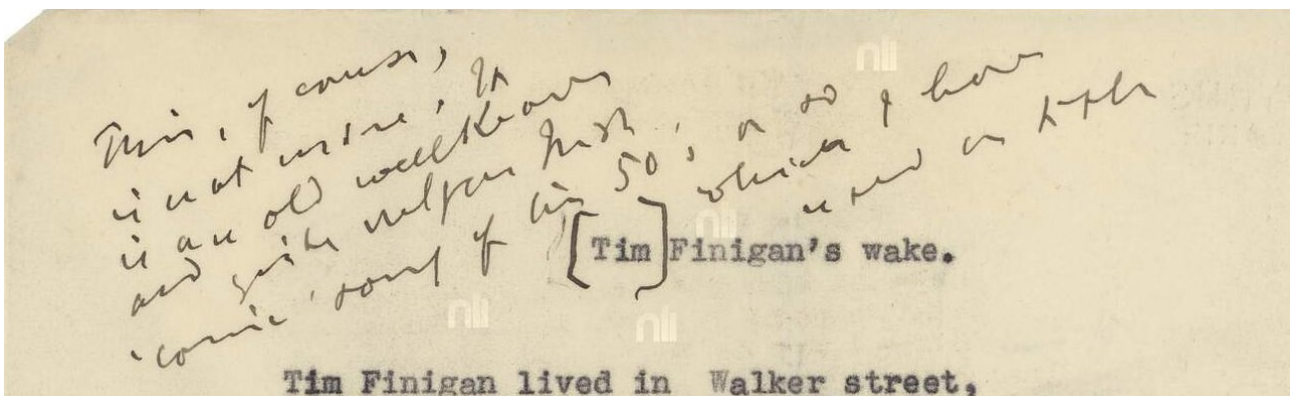 This, of course,
is not mine, It
is an old wellknown
and quite vulgar Irish
'comic' song of the 50's, or so which I have
used as title
[Tim] Finigan's wake.
Tim Finigan lived in Walker street,